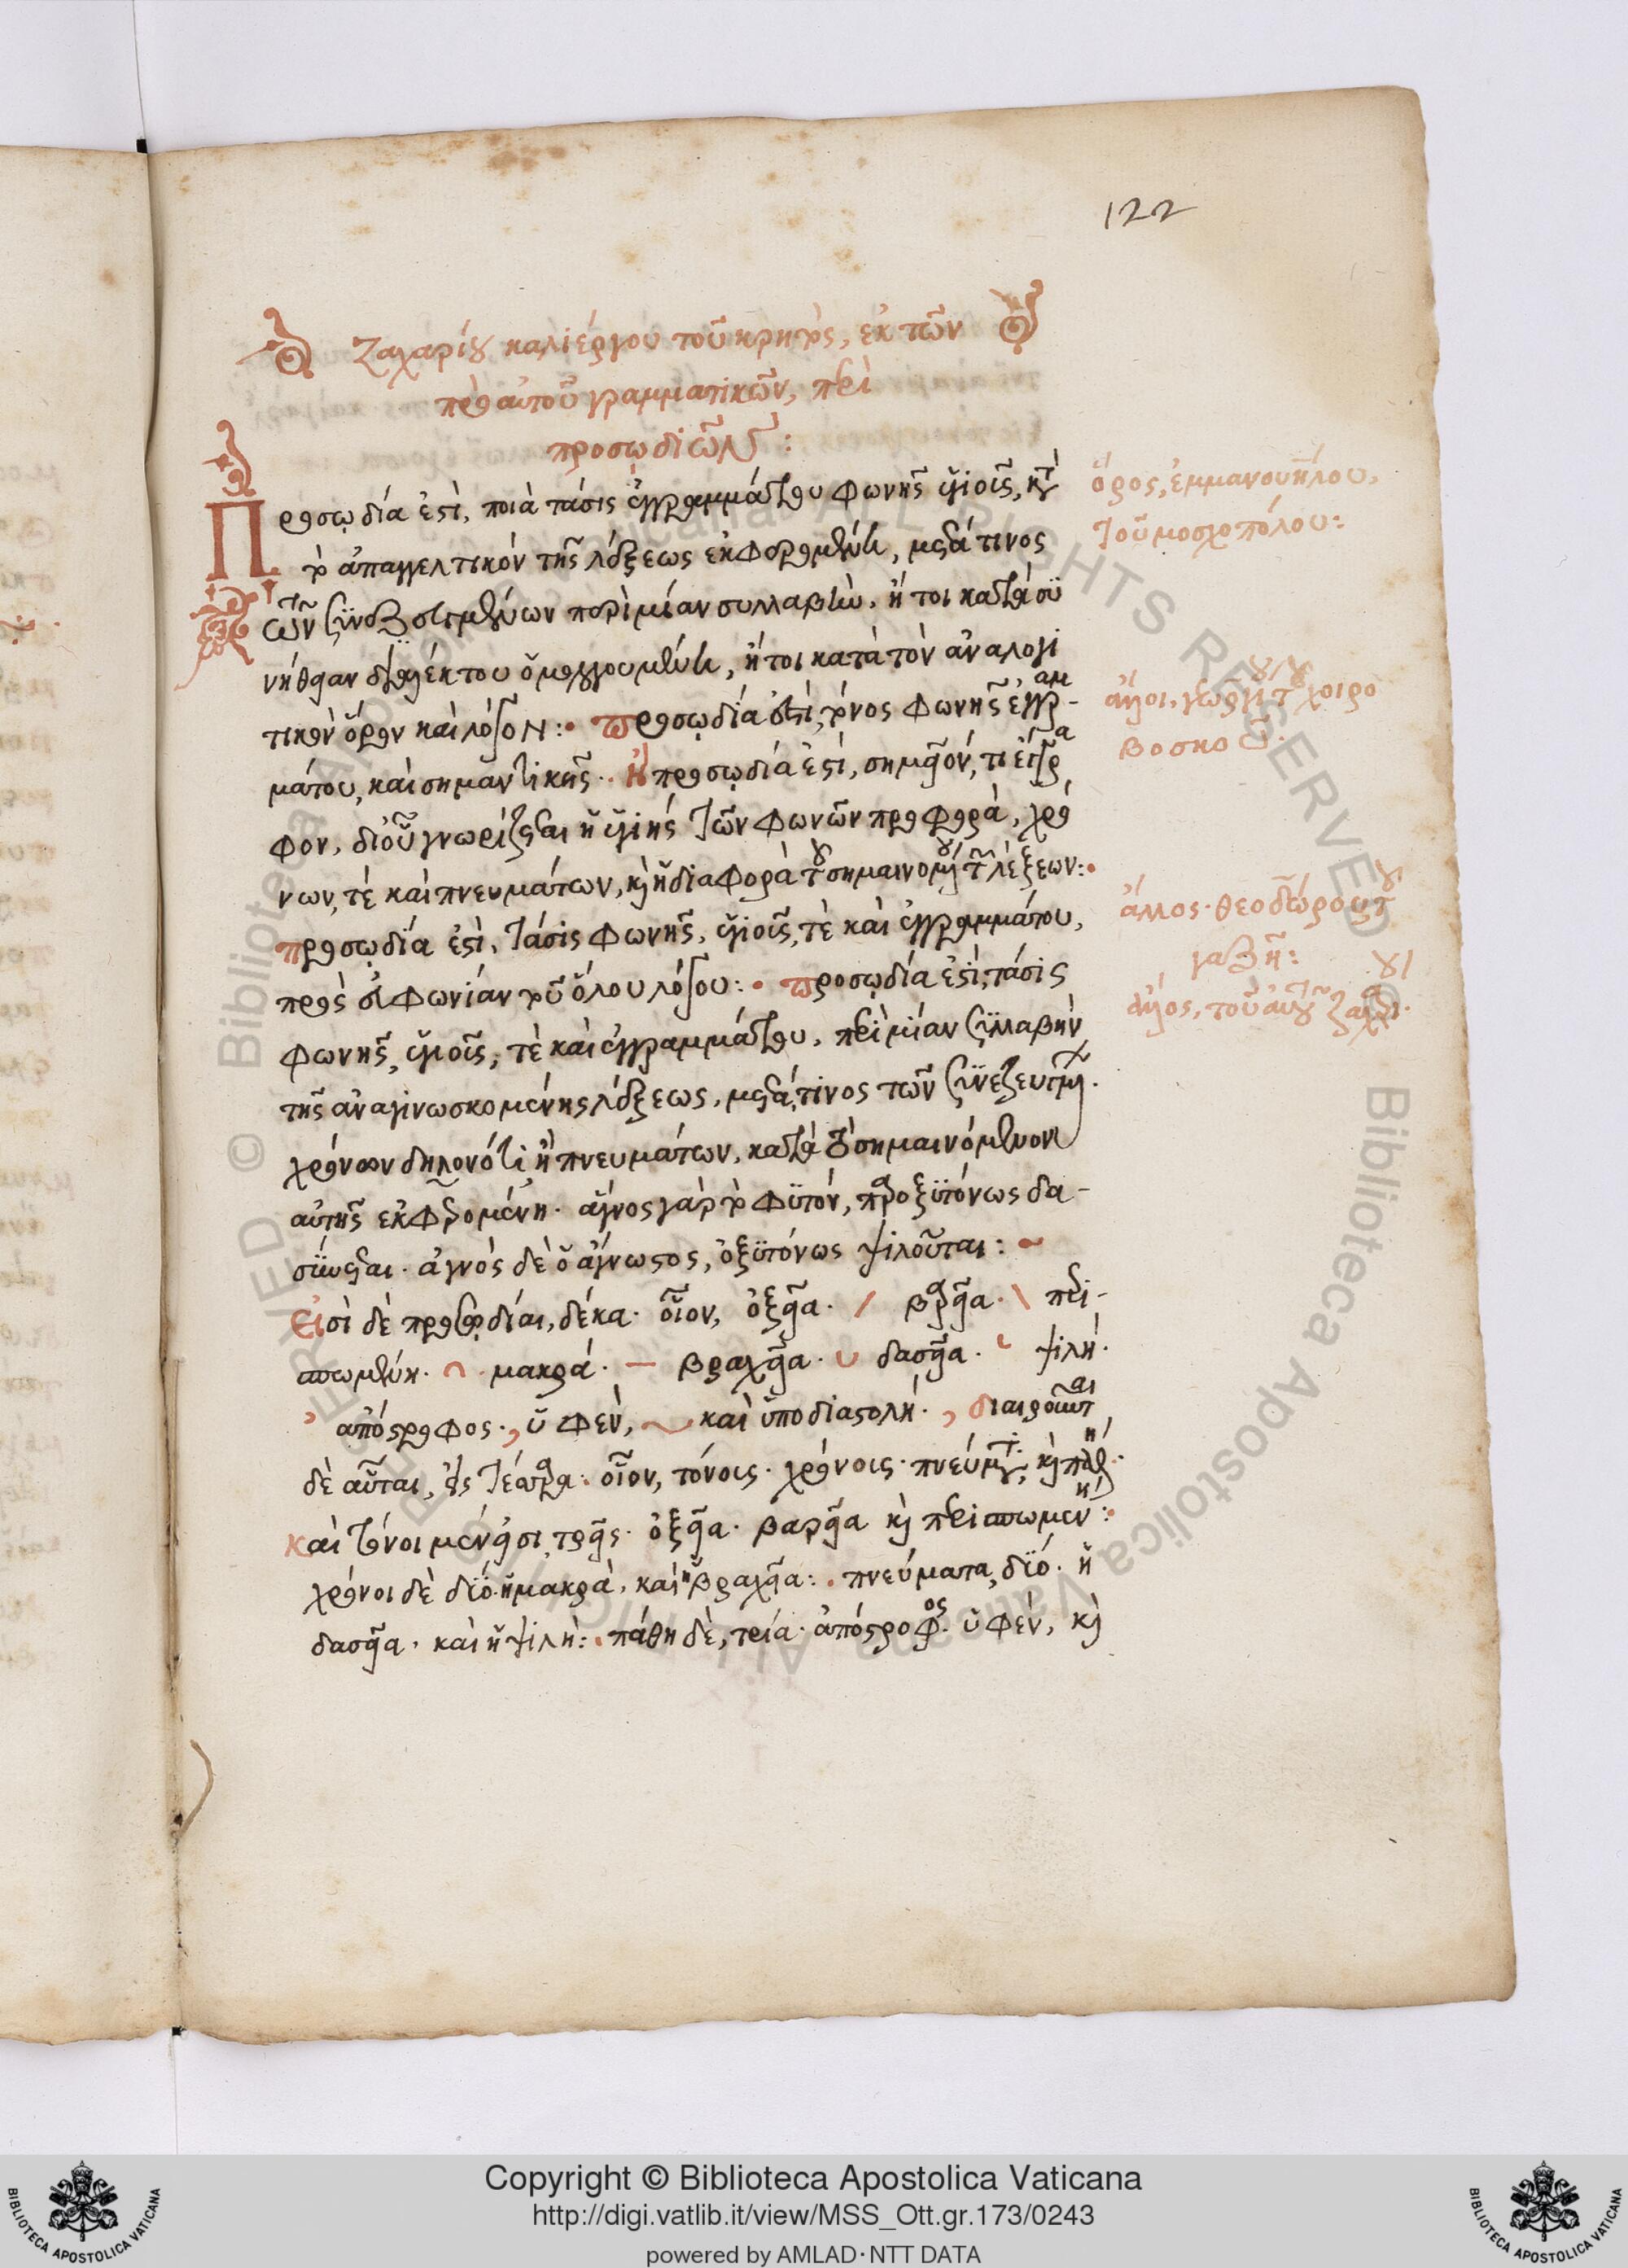 122
Ζαχαρίου καλιέργου τοῦ κρητὸς, ἐκ τῶν
πρὸ αὐτοῦ γραμματικῶν, περὶ
προσῳδιῶν:
Προσῳδία ἐστὶ, ποιὰ τάσις ἐγγραμμάτου φωνῆς ὑγιοῦς, κατὰ
τὸ ἀπαγγελτικόν τῆς λέξεως ἐκφερομένη, μετά τινος
τῶν συνεζευγμένων περὶ μίαν συλλαβὴν, ἤτοι κατὰ συ
νήθειαν διαλέκτου ὁμολογουμένη, ἤτοι κατὰ τὸν ἀναλογι
τικὸν ὅρον καὶ λόγον: προσῳδία ἐστὶ τόνος φωνῆς ἐγγραμ-
μάτου, καὶ σημαντικῆς. ἢ προσῳδία ἐστὶ, σημεῖόν, τι ἔγγρα
φον, δι' οὗ γνωρίζεται ἡ ὑγιής τῶν φωνῶν προφορὰ, χρό
νων, τὲ καὶ πνευμάτων, καὶ ἡ διαφορὰ τοῦ σημαινομένου τῶν λέξεων:
προσῳδία ἐστὶ, τάσις φωνῆς, ὑγιοῦς, τὲ καὶ ἐγγραμμάτου,
πρὸς εὐφωνίαν τοῦ ὅλου λόγου: προσῳδία ἐστὶ, τάσις
φωνῆς, ὑγιοῦς, τὲ καὶ ἐγγραμμάτου, περὶ μίαν συλλαβὴν
τῆς ἀναγινωσκομένης λέξεως, μετά τινος τῶν συνεζευγμένων.
χρόνων δηλονότι ἢ πνευμάτων, κατὰ τὸ σημαινόμενον
αὐτῆς ἐκφερομένη. ἄγνος γὰρ τὸ φυτόν, παροξυτόνως δα-
σύνεται. ἀγνὸς δὲ ὁ ἄγνωστος, ὀξυτόνως ψιλοῦται:
Εἰσὶ δὲ προσῳδίαι, δέκα. οἷον, ὀξεῖα. / βαρεῖα. \ περι-
σπωμένη. ῀ μακρά. – βραχεῖα. ᴗ δασεῖα. ῾ ψιλή.
᾿ ἀπόστροφος. , ὑφὲν, ‿ καὶ ὑποδιαστολή. , διαιροῦνται
δὲ αὗται, εἰς τέσσαρα. οἷον, τόνοις. χρόνοις. πνεύμασι. καὶ πάθη.
καὶ τόνοι μέν εἰσι τρεῖς. ὀξεῖα. βαρεῖα καὶ περισπωμένη:
χρόνοι δὲ δύο. ἡ μακρὰ. καὶ ἡ βραχεῖα: πνεύματα, δύο. ἡ
δασεῖα. καὶ ἡ ψιλὴ: πάθη δὲ, τρία. ἀπόστροφος. ὑφέν, καὶ
ὅρος, ἐμμανουήλου,
τοῦ μοσχοπόλου:
ἄλλοι, γεωργίου τοῦ χοιρο
βοσκοῦ.
ἄλλος. θεοδώρου τοῦ
γαζῆ:
ἄλλος, τοῦ αὐτοῦ ζαχαρίου.
Copyright © Biblioteca Apostolica Vaticana
http://digi.vatlib.it/view/MSS_Ott.gr.173/0243
powered by AMLAD·NTT DATA